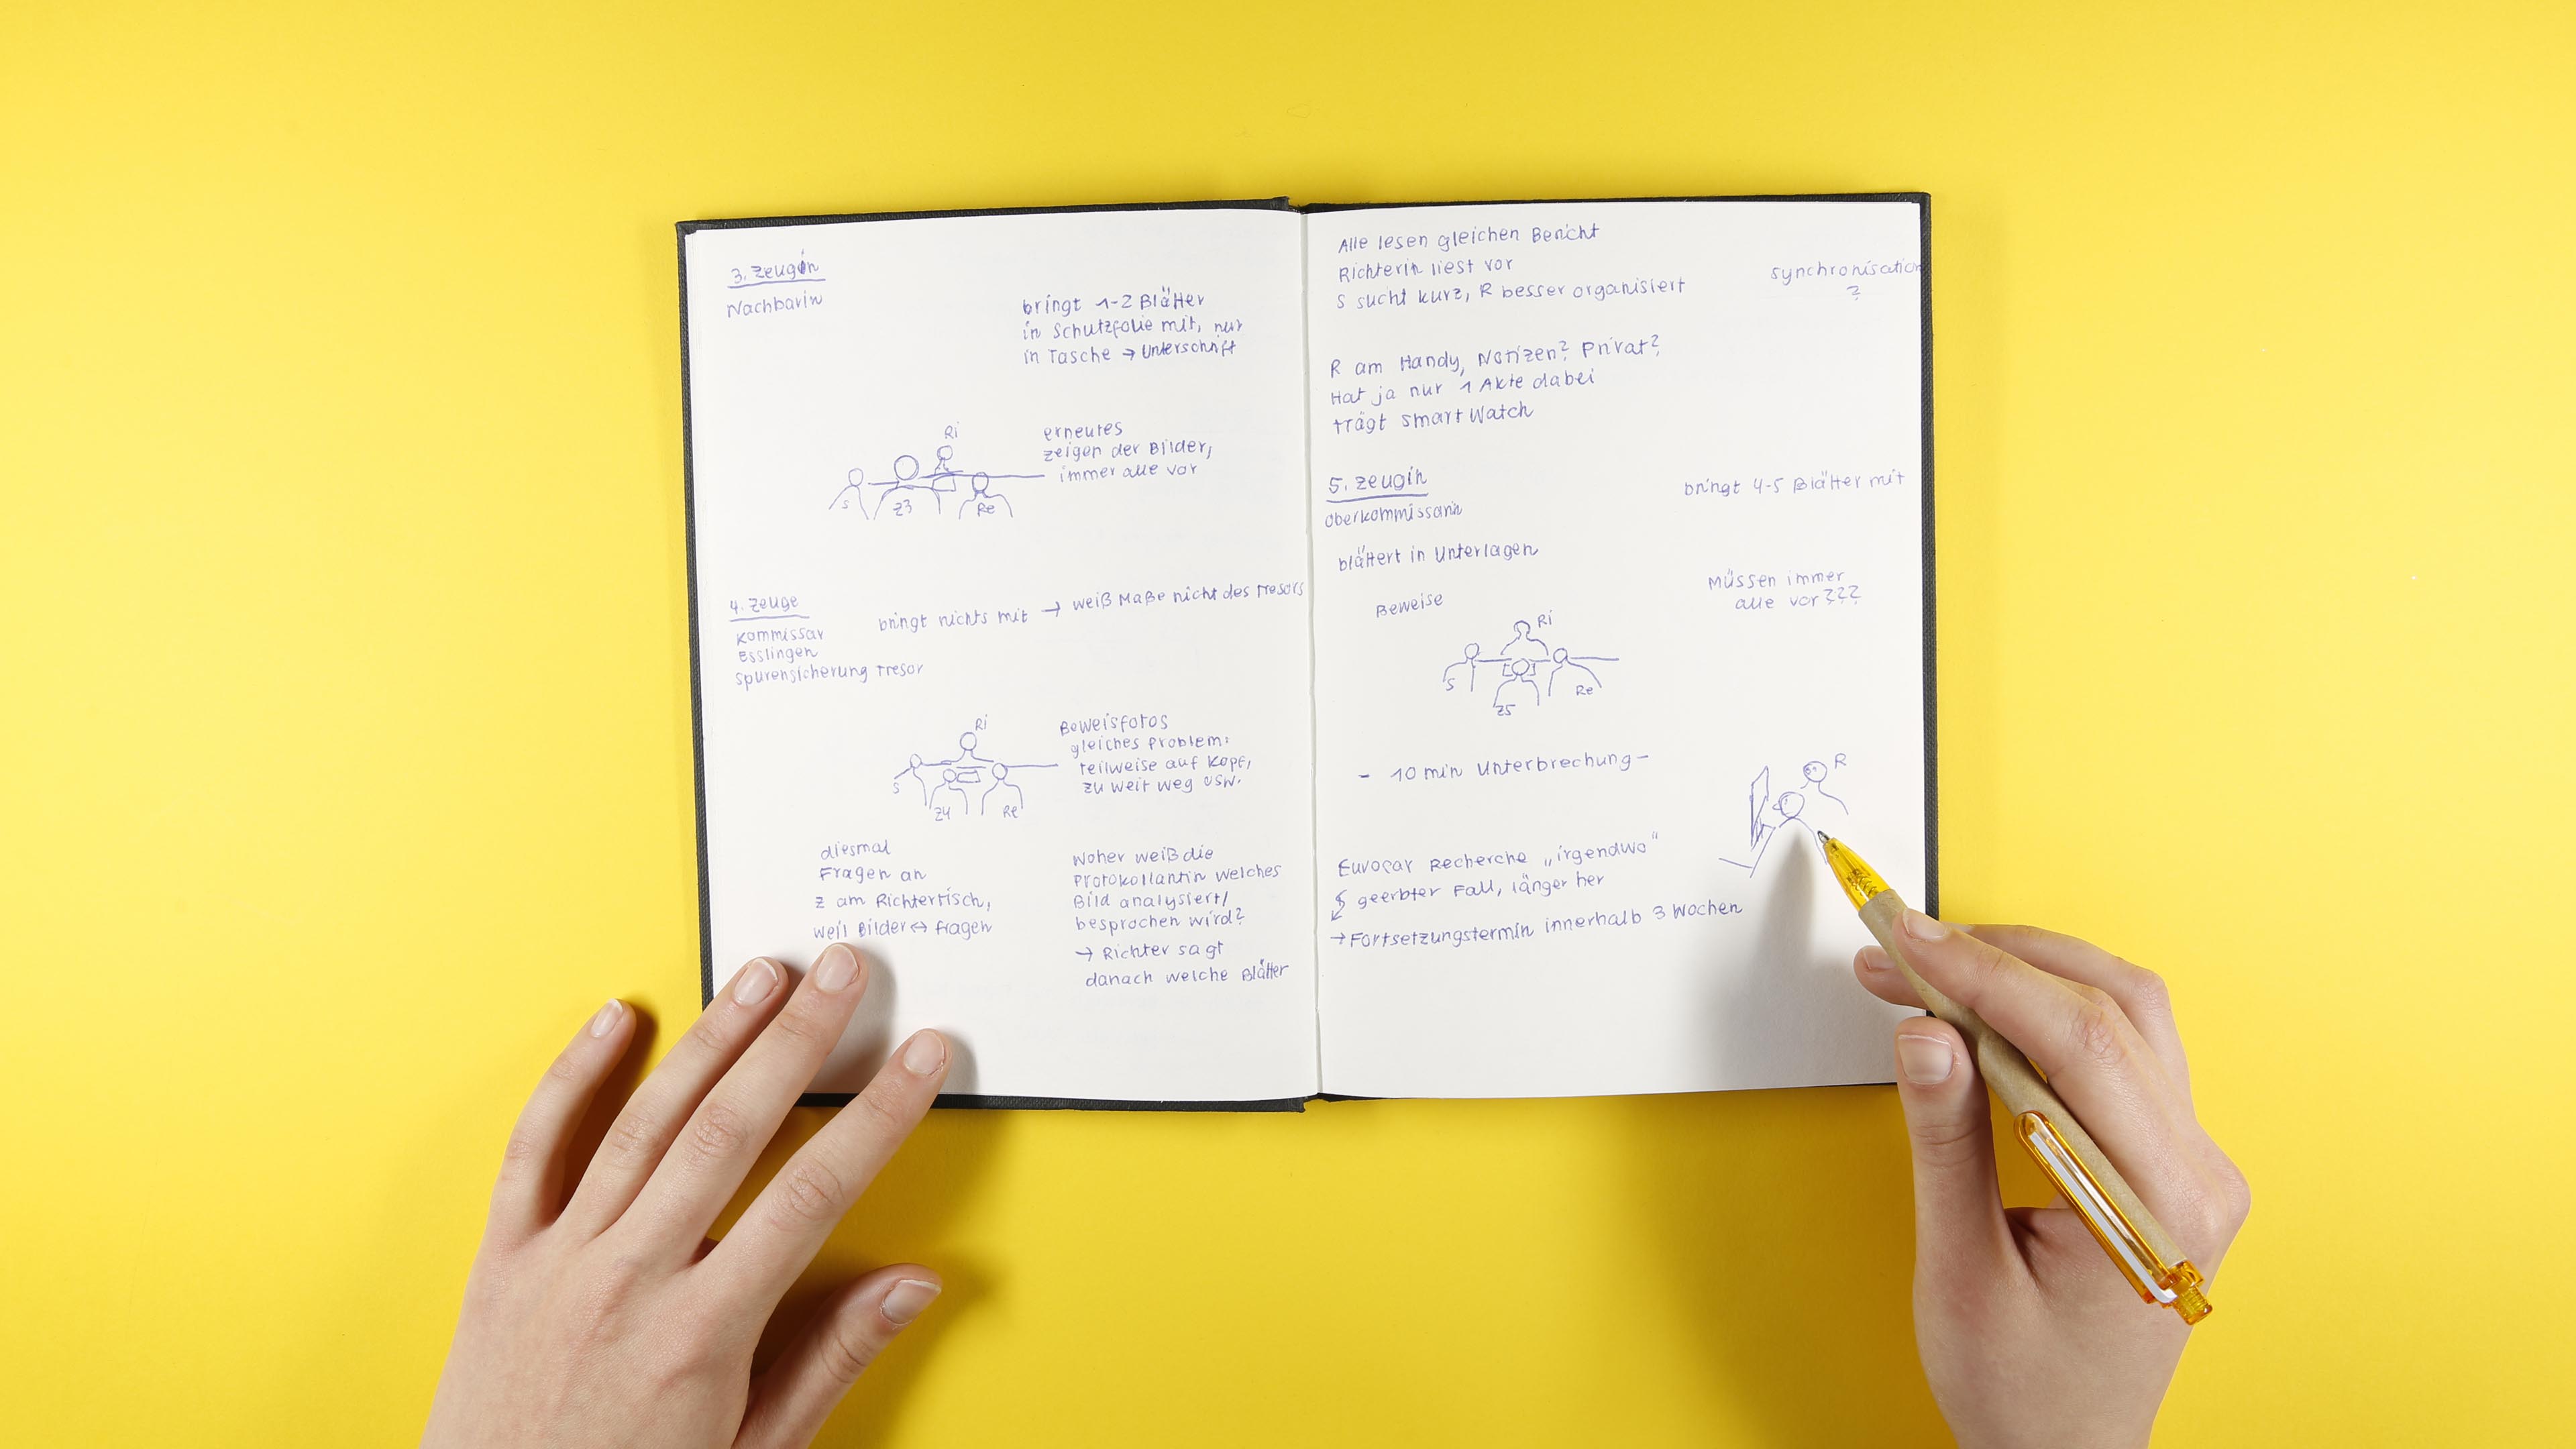 3. Zeugin
Nachbarin
bringt 1-2 Blätter
in Schutzfolie mit, nur
in Tasche → Unterschrift
Ri
S
Z3
Re
erneutes
zeigen der Bilder,
immer alle vor
4. Zeuge
Kommissar
Esslingen
Spurensicherung Tresor
bringt nichts mit → weiß Maße nicht des Tresors
Ri
S
Z4
Re
Beweisfotos
gleiches Problem:
teilweise auf Kopf,
zu weit weg usw.
diesmal
Fragen an
Z am Richtertisch,
weil Bilder ↔ fragen
Woher weiß die
Protokollantin welches
Bild analysiert/
besprochen wird?
→ Richter sagt
danach welche Blätter
Alle lesen gleichen Bericht
Richterin liest vor
S sucht kurz, R besser organisiert
Synchronisation
?
R am Handy, Notizen? Privat?
Hat ja nur 1 Akte dabei
trägt Smart Watch
5. Zeugin
Oberkommissarin
bringt 4-5 Blätter mit
blättert in Unterlagen
Müssen immer
alle vor???
Beweise
Ri
S
Z5
Re
- 10 min Unterbrechung -
R
Europcar Recherche „irgendwo"
geerbter Fall, länger her
→ Fortsetzungstermin innerhalb 3 Wochen